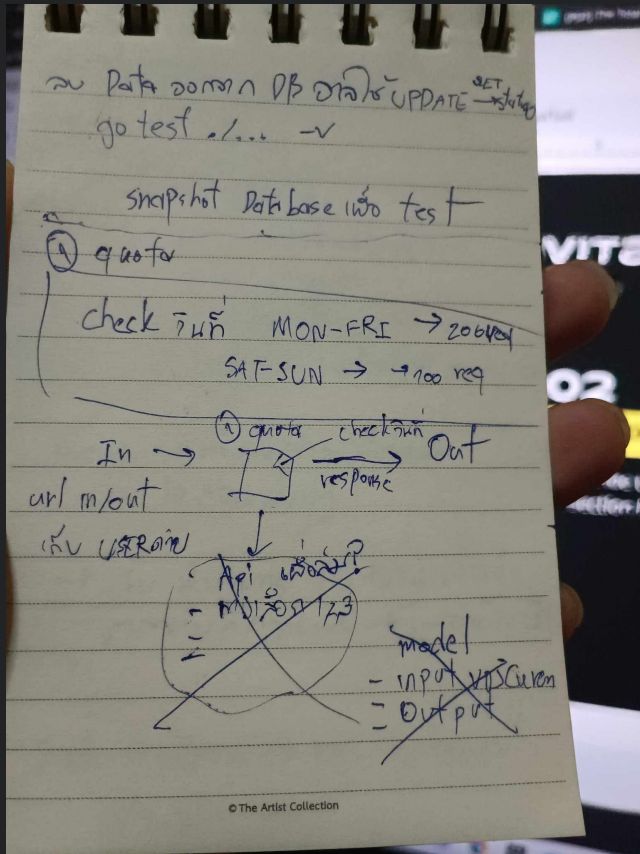 ลบ Data ออกจาก DB อาจใช้ UPDATE SET → status
go test ./... -v
snapshot Database เพื่อ test
① quota
check วันที่ MON-FRI → 200 req
SAT-SUN → 100 req
① quota check วันที่
In → Out
response
url in/out
เก็บ USER ด้วย
Api
model
- input
- Output
© The Artist Collection
VITa
02